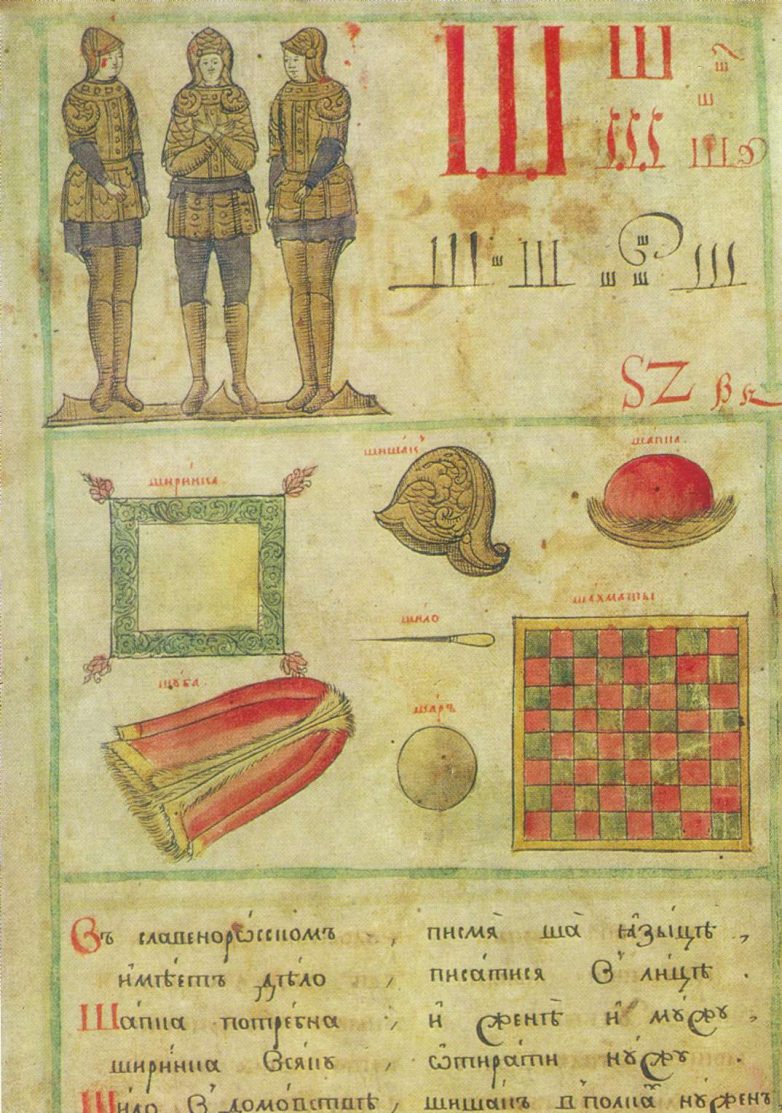 Ш Ш ш
ш
ш ш
Ш ш Ш ш ш ш Ш
SZ
ширинка
шишакъ
шапка
шило
шахматы
шуба
шаръ
Въ славеноросскомъ, писмя ша языцѣ,
имѣетъ дѣло писатися в лицѣ.
Шапка потребна, и женѣ и мужу,
ширинка всяку ѡтирати нужу.
Шило в домовствѣ, шишакъ в полкахъ нуженъ